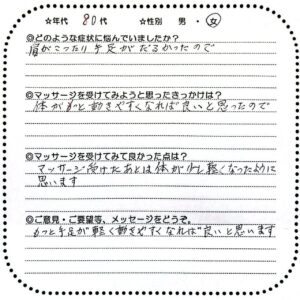 ☆年代 80代 ☆性別 男・女
◎どのような症状に悩んでいましたか?
肩がこったり手足がだるかったので
◎マッサージを受けてみようと思ったきっかけは?
体がもっと動きやすくなれば良いと思ったので
◎マッサージを受けてみて良かった点は?
マッサージ受けたあとは体が少し軽くなったように
思います
◎ご意見・ご要望等、メッセージをどうぞ。
もっと手足が軽く動きやすくなれば良いと思います